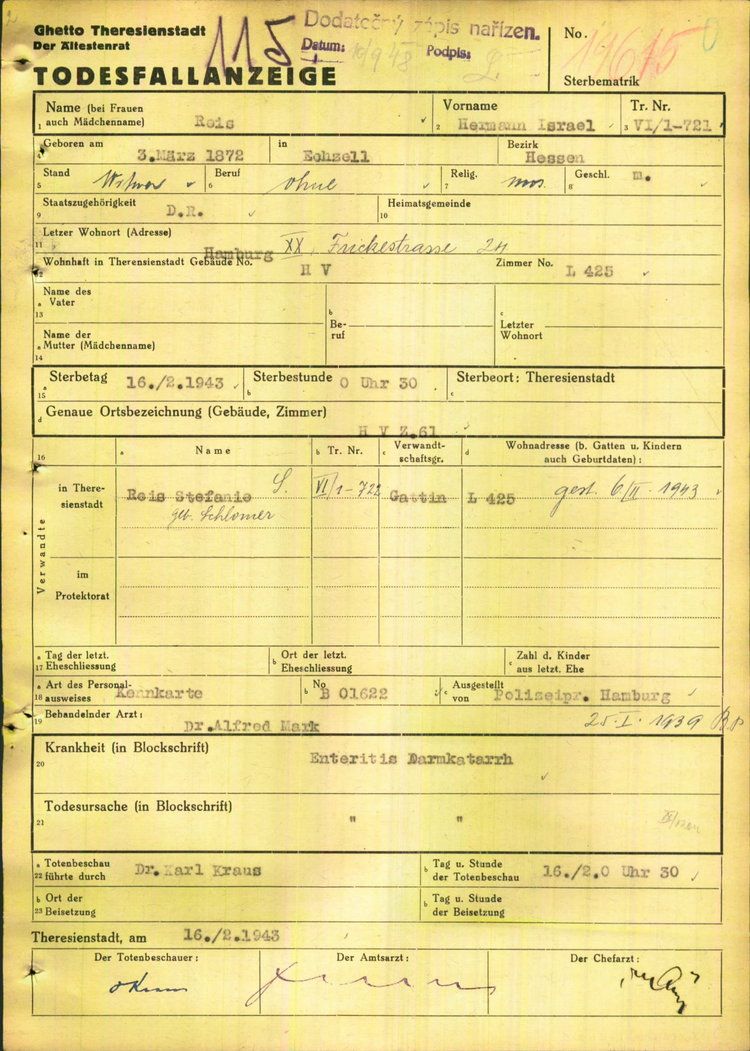 Ghetto Theresienstadt
Der Ältestenrat
TODESFALLANZEIGE
115
Dodatečný zápis nařízen.
Datum: 10/9 48 Podpis:
No.
Sterbematrik
Name (bei Frauen
1 auch Mädchenname) Reis
Vorname
2 Hermann Israel
Tr. Nr.
3 VI/1-721
Geboren am
4 3.März 1872
in
Echzell
Bezirk
Hessen
Stand
5 Witwer
Beruf
6 ohne
Relig.
7 mos.
Geschl. m.
8
Staatszugehörigkeit
9 D.R.
Heimatsgemeinde
10
Letzer Wohnort (Adresse)
11 Hamburg XX, Frickestrasse 24
12 Wohnhaft in Therensienstadt Gebäude No. H V
Zimmer No. L 425
Name des
a Vater
13
b
Be-
ruf
c
Letzter
Wohnort
Name der
a Mutter (Mädchenname)
14
a
15 Sterbetag 16./2.1943
b Sterbestunde 0 Uhr 30
c Sterbeort: Theresienstadt
d Genaue Ortsbezeichnung (Gebäude, Zimmer)
H V Z.61
16
a Name
b Tr. Nr.
c Verwandt-
schaftsgr.
d Wohnadresse (b. Gatten u. Kindern
auch Geburtdaten):
Verwandte
in There-
sienstadt
Reis Stefanie S. VI/1-722 Gattin L 425 gest. 6/II. 1943
geb. Schlomer
im
Protektorat
a Tag der letzt.
17 Eheschliessung
b Ort der letzt.
Eheschliessung
c Zahl d. Kinder
aus letzt. Ehe
a Art des Personal-
18 ausweises Kennkarte
b No B 01622
c Ausgestellt
von Polizeipr. Hamburg
25.I.1939
19 Behandelnder Arzt:
Dr.Alfred Mark
Krankheit (in Blockschrift)
20 Enteritis Darmkatarrh
Todesursache (in Blockschrift)
21 " "
a Totenbeschau
22 führte durch Dr.Karl Kraus
b Tag u. Stunde
der Totenbeschau 16./2.0 Uhr 30
a Ort der
23 Beisetzung
b Tag u. Stunde
der Beisetzung
Theresienstadt, am 16./2.1943
Der Totenbeschauer:
Der Amtsarzt:
Der Chefarzt: